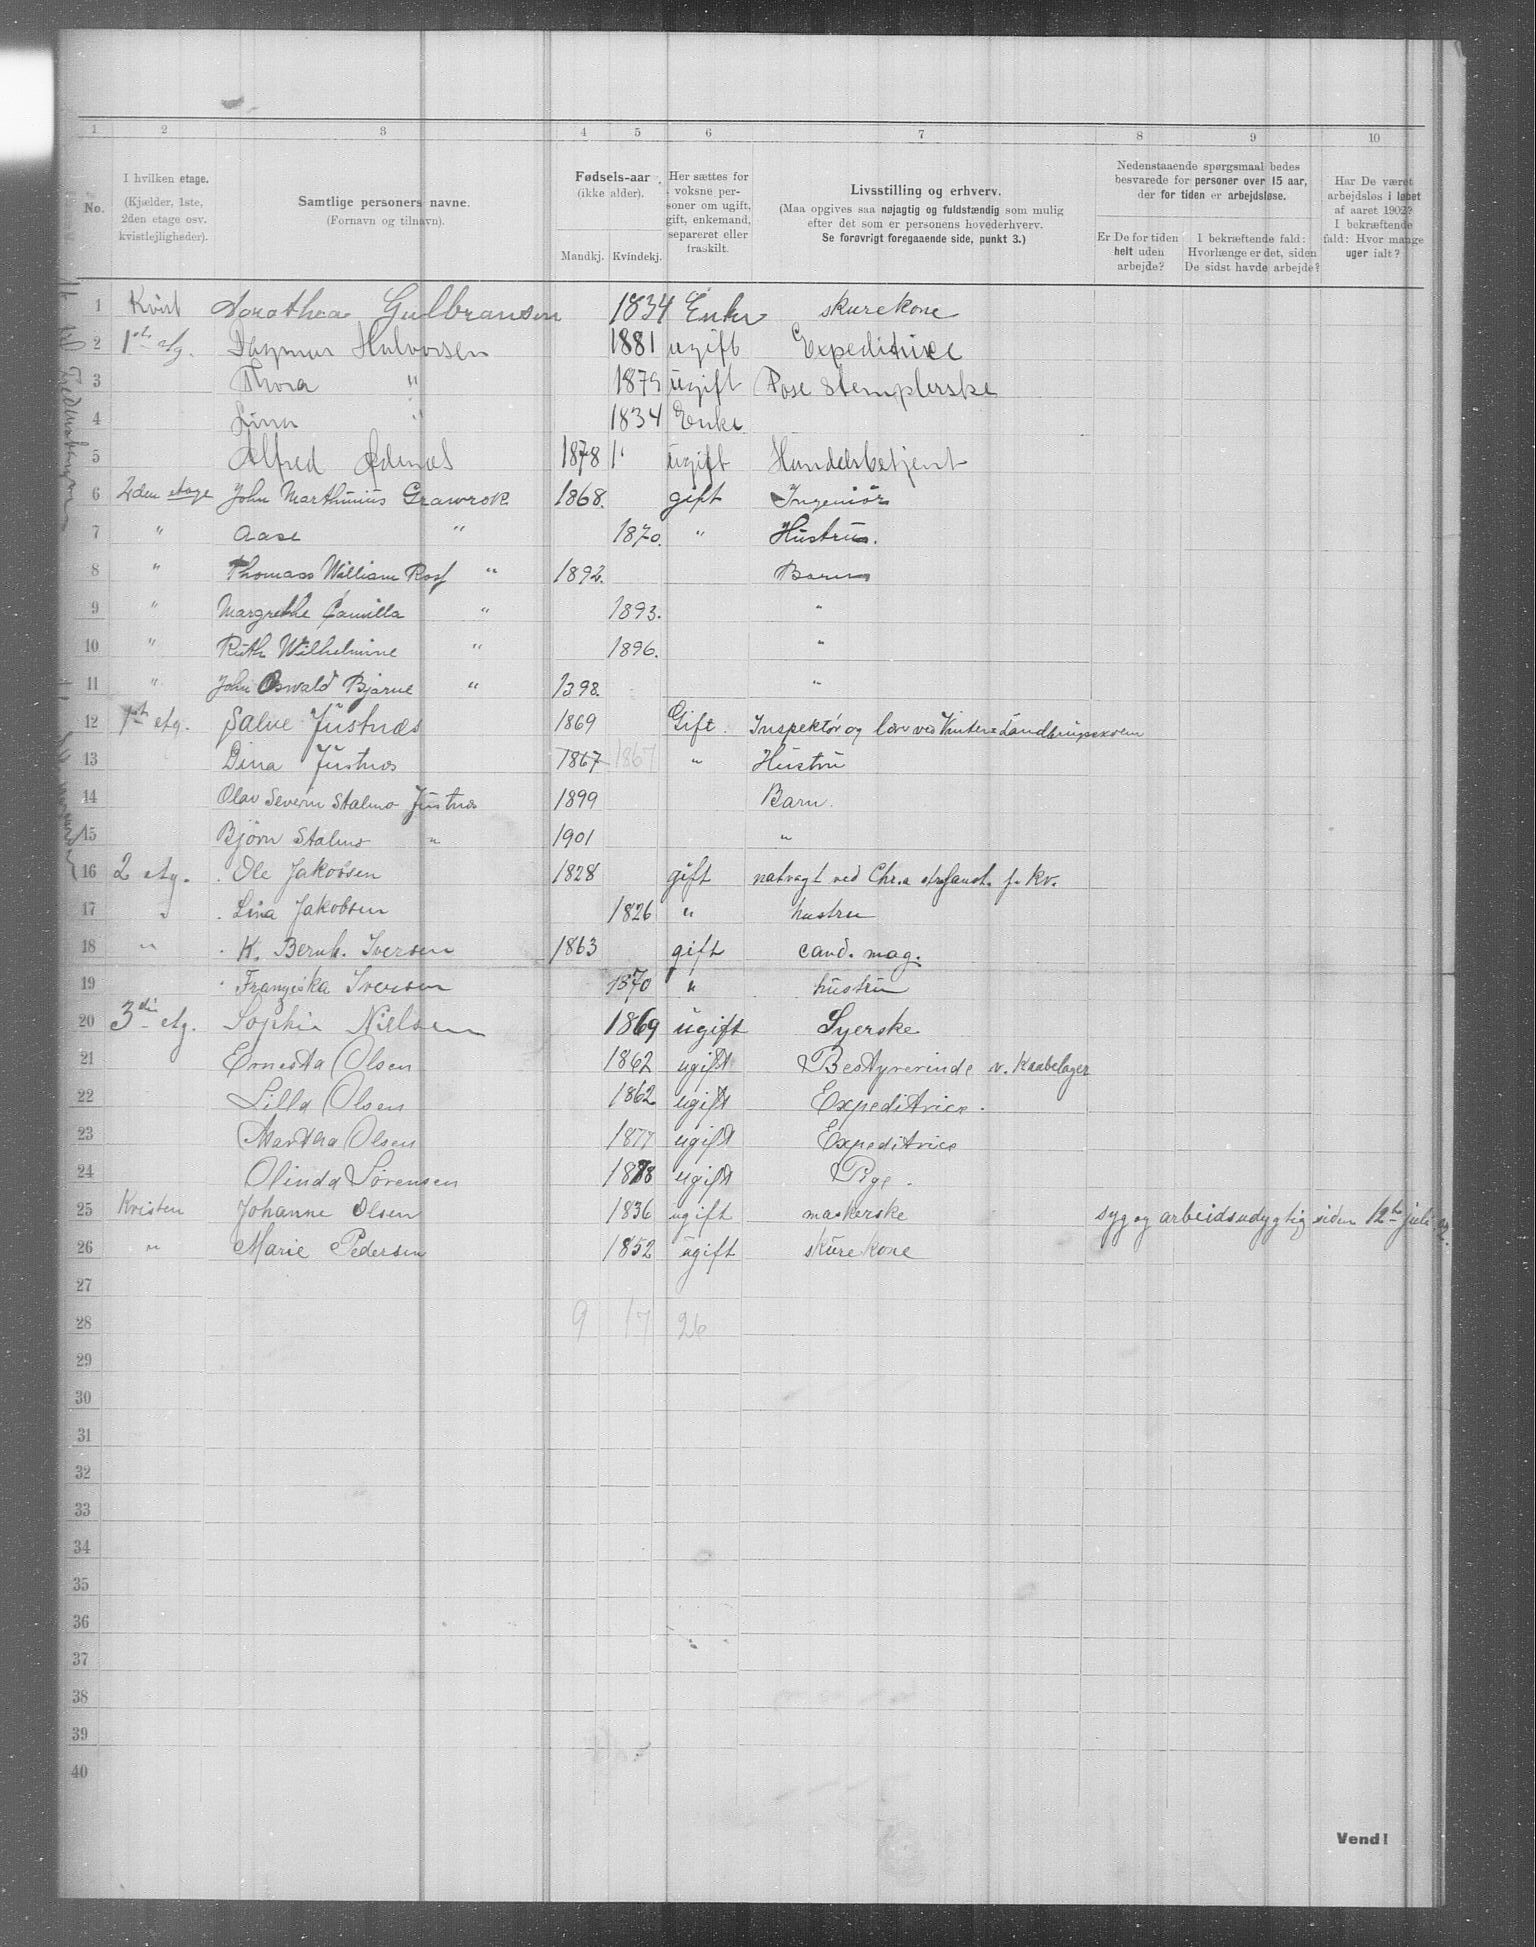 1 2 3 4 5 6 7 8 9 10
No.
I hvilken etage.
(Kjælder, 1ste,
2den etage osv.
kvistlejligheder).
Samtlige personers navne.
(Fornavn og tilnavn).
Fødsels-aar
(ikke alder).
Mandkj. Kvindekj.
Her sættes for
voksne per-
soner om ugift,
gift, enkemand,
separeret eller
fraskilt.
Livsstilling og erhverv.
(Maa opgives saa nøjagtig og fuldstændig som mulig
efter det som er personens hovederhverv.
Se forøvrigt foregaaende side, punkt 3.)
Nedenstaaende spørgsmaal bedes
besvarede for personer over 15 aar,
der for tiden er arbejdsløse.
Er De for tiden
helt uden
arbejde?
I bekræftende fald:
Hvorlænge er det, siden
De sidst havde arbejde?
Har De været
arbejdsløs i løbet
af aaret 1902?
I bekræftende
fald: Hvor mange
uger ialt?
1 Kvist Dorothea Gulbransen 1834 Enke skurekone
2 1ste etg. Dagmar Halvorsen 1881 ugift Expeditrice
3 Thora " 1879 ugift Pose Stemplerske
4 Lina " 1834 Enke
5 Alfred Ødenæs 1878 ugift Handelsbetjent
6 2den etage John Marthinius Grawrok 1868. gift Ingeniør
7 " Aase " 1870. " Hustru.
8 " Thomass William Rosf " 1892. Barn
9 " Margrethe Camilla " 1893. "
10 " Ruth Wilhelmine " 1896. "
11 " John Oswald Bjarne " 1898. "
12 1ste etg. Salve Justnæs 1869 Gift. Inspektør og lærer ved
13 Dina Justnæs 1867 1867 " Hustru
14 Olav Severin Stalmo Justnæs 1899 Barn.
15 Bjørn Stalmo " 1901 "
16 2 etg. Ole Jakobsen 1828 gift natvagt ved Chr.a strafanst. f. kv.
17 " Lina Jakobsen 1826 " hustru
18 " K. Bernh. Iversen 1863 gift cand. mag.
19 Franziska Iversen 1870 " hustru
20 3die etg. Sophie Nielsen 1869 ugift Syerske
21 Ernesta Olsen 1862 ugift Bestyrerinde v. Kaabelager
22 Lilla Olsen 1862 ugift Expeditrice.
23 Martha Olsen 1877 ugift Expeditrice
24 Olinda Sørensen 1878 ugift Pige.
25 Kvisten Johanne Olsen 1836 ugift maskerske syg og arbeidsudygtig siden 12te juli 02.
26 " Marie Pedersen 1852 ugift skurekone
27
28 9 17 26
29
30
31
32
33
34
35
36
37
38
39
40
Vend!